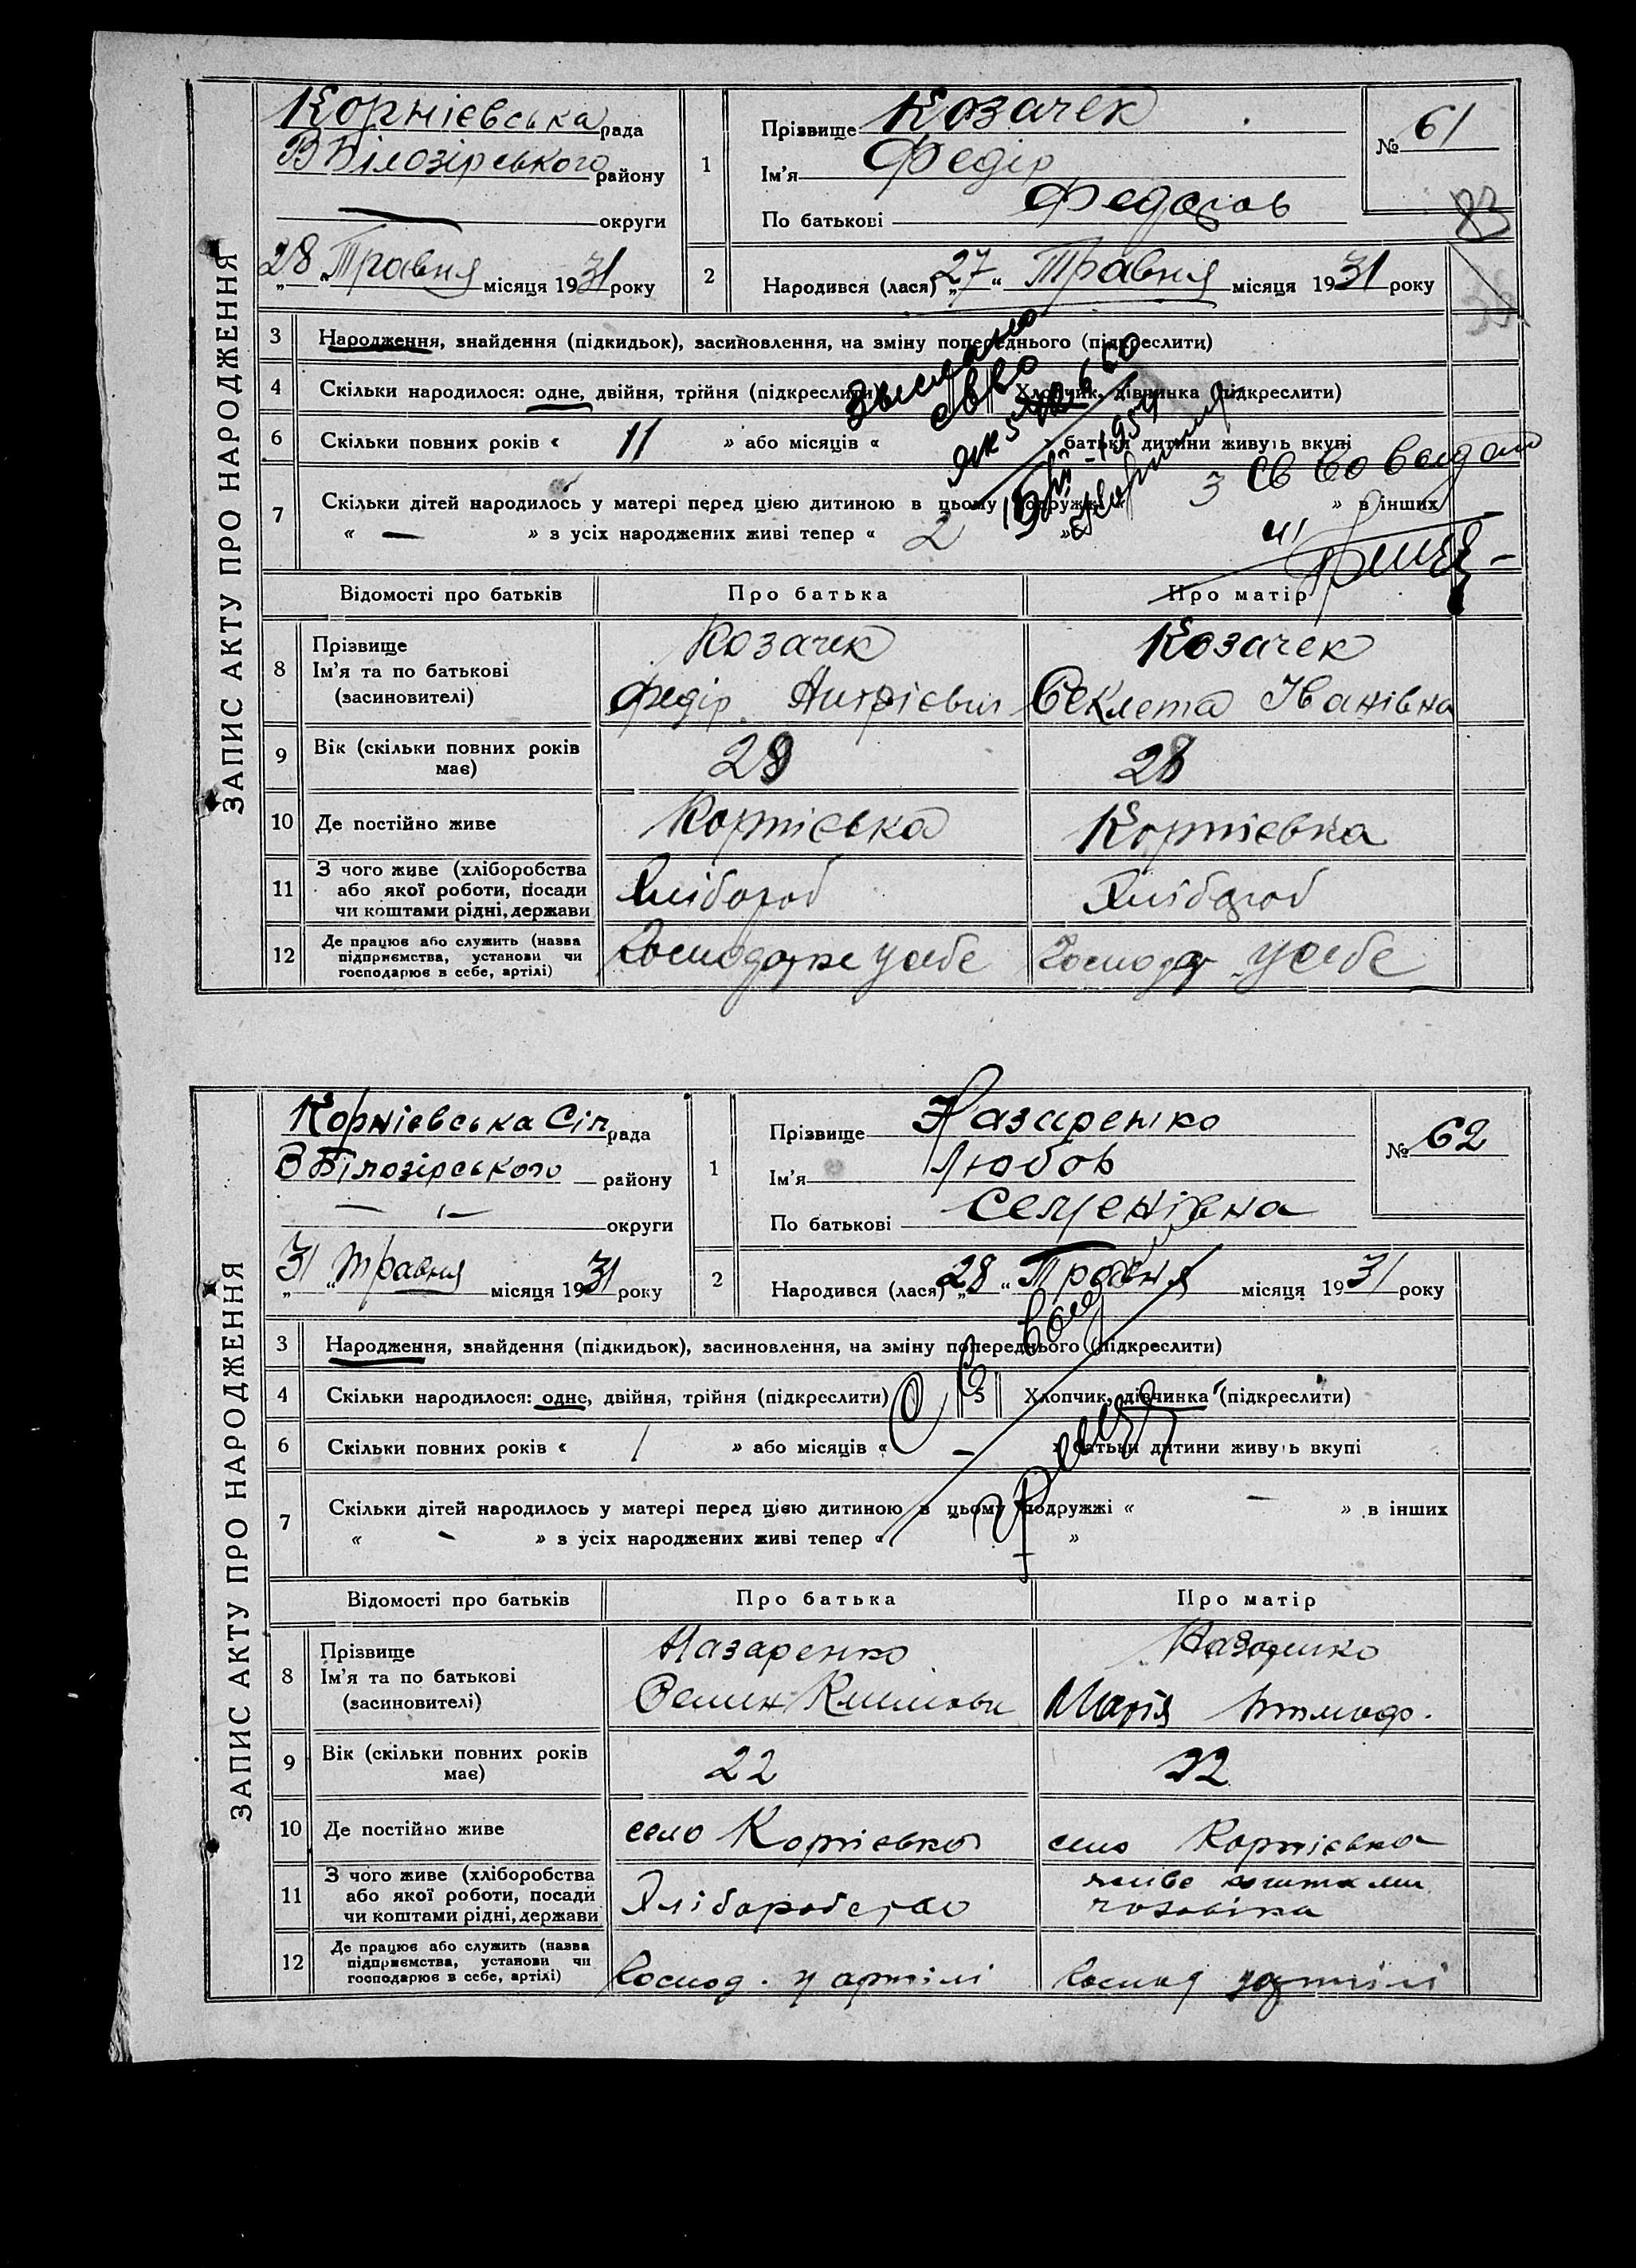 ЗАПИС АКТУ ПРО НАРОДЖЕННЯ
Корнієвська рада
В Білозірського району
округи
„28“ Травня місяця 1931 року
1
Прізвище Козачек
Ім'я Федір
По батькові Федоров
№ 61
83
2
Народився (лася) „27“ Травня місяця 1931 року
3 Народження, знайдення (підкидьок), засиновлення, на зміну попереднього (підкреслити)
4 Скільки народилося: одне, двійня, трійня (підкреслити) Хлопчик, дівчинка (підкреслити)
6 Скільки повних років « 11 » або місяців « » батьки дитини живуть вкупі
7 Скільки дітей народилось у матері перед цією дитиною в цьому подружжі « 3 » в інших
« — » з усіх народжених живі тепер « 2 »
Відомості про батьків Про батька Про матір
8 Прізвище Козачек Козачек
Ім'я та по батькові
(засиновителі) Федір Секлета Іванівна
9 Вік (скільки повних років має) 28
10 Де постійно живе Корнієвка Корнієвка
11 З чого живе (хліборобства або якої роботи, посади чи коштами рідні, держави Хлібороб Хлібороб
12 Де працює або служить (назва підприємства, установи чи господарює в себе, артілі) Господарює у себе Господар у себе
ЗАПИС АКТУ ПРО НАРОДЖЕННЯ
Корнієвська Сіл рада
В Білозірського району
округи
„31“ травня місяця 1931 року
1
Прізвище Назаренко
Ім'я Любов
По батькові Семенівна
№ 62
2
Народився (лася) „28“ Травня місяця 1931 року
3 Народження, знайдення (підкидьок), засиновлення, на зміну попереднього (підкреслити)
4 Скільки народилося: одне, двійня, трійня (підкреслити) 5 Хлопчик, дівчинка (підкреслити)
6 Скільки повних років « 1 » або місяців « — » батьки дитини живуть вкупі
7 Скільки дітей народилось у матері перед цією дитиною в цьому подружжі « — » в інших
« — » з усіх народжених живі тепер « »
Відомості про батьків Про батька Про матір
8 Прізвище Назаренко Назаренко
Ім'я та по батькові
(засиновителі) Семен Климови Марія
9 Вік (скільки повних років має) 22 22
10 Де постійно живе село Корнієвка село Корнієвка
11 З чого живе (хліборобства або якої роботи, посади чи коштами рідні, держави Хліборобство живе коштами чоловіка
12 Де працює або служить (назва підприємства, установи чи господарює в себе, артілі) Господ. у артілі Господ у артілі